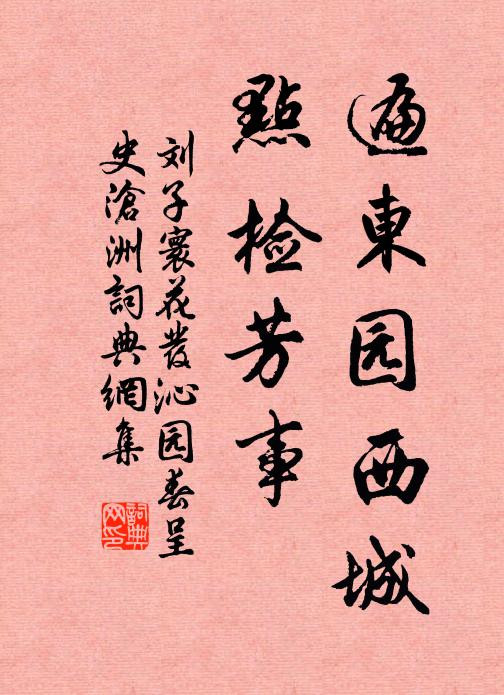 遍東园西城
點检芳事
刘子寰花發沁园春呈
史滄洲詞典網集
詞典
网印